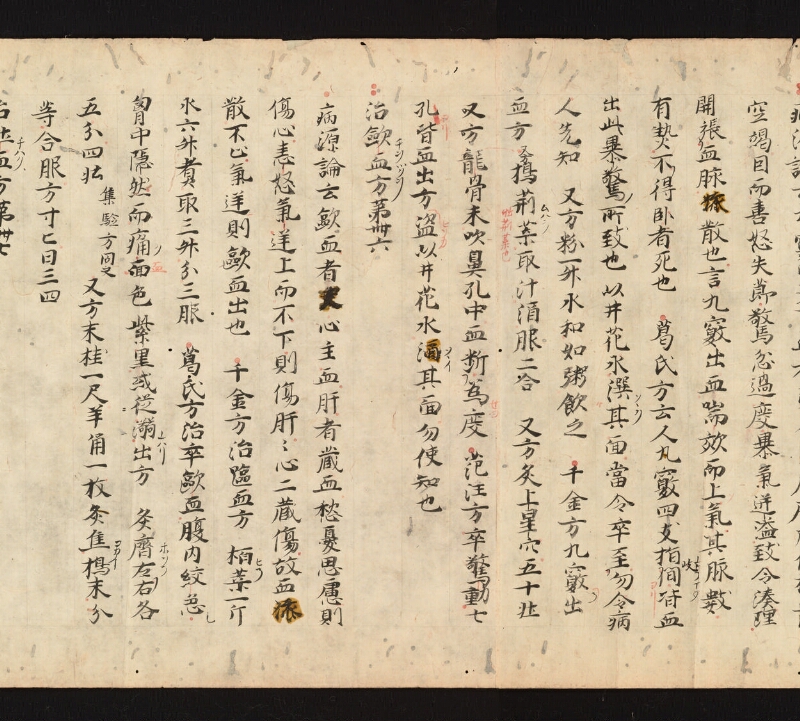 空竭因而善怒失節驚忿過度暴氣逆溢致令湊理
開張血脉散也言九竅出血喘欬而上氣其脉數
有熱不得卧者死也 葛氏方云人九竅四支指間皆血
出此暴驚所致也以井花水潠其面當令卒至勿令病
人先知 又方粉一升水和如粥飲之 千金方九竅出
血方 搗荊葉取汁酒服二合 又方灸上星穴五十壯
又方龍骨末吹鼻孔中血断為度 范汪方卒驚動七
孔皆血出方 盗以井花水洒其面勿使知也
治歐血方第卅六
病源論云歐血者 心主血肝者藏血愁憂思慮則
傷心恚怒氣逆上而不下則傷肝〻心二藏傷故血
散不止氣逆則歐血出也 千金方治歐血方 栢葉一斤
水六升煮取三升分三服 葛氏方治卒歐血腹内絞急
胷中隠然而痛面色紫黒或従溺出方 灸臍左右各
五分四壮 集驗方同之 又方末桂一尺羊角一枚灸焦搗末分
等合服方寸匕日三四
治吐血方第卅七